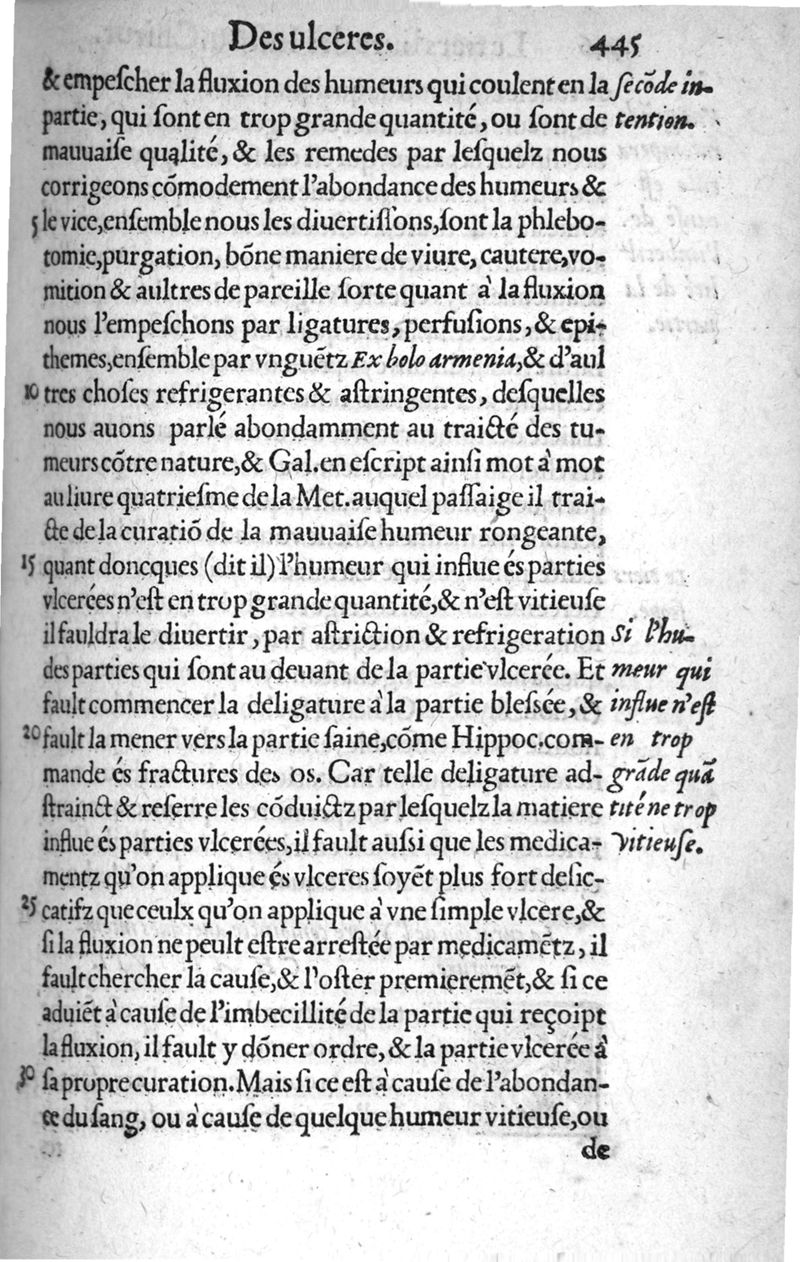 Des ulceres. 445
& empeſcher la fluxion des humeurs qui coulent en la ſecōde in-
partie, qui ſont en trop grande quantité, ou ſont de tention.
mauuaiſe qualité, & les remedes par leſquelz nous
corrigeons cōmodement l'abondance des humeurs &
5 le vice, enſemble nous les diuertiſſons, ſont la phlebo-
tomie, purgation, bōne maniere de viure, cautere, vo-
mition & aultres de pareille ſorte quant à la fluxion
nous l'empeſchons par ligatures, perfuſions, & epi-
themes, enſemble par vnguētz Ex bolo armenia, & d'aul
10 tres choſes refrigerantes & aſtringentes, deſquelles
nous auons parlé abondamment au traicté des tu-
meurs cōtre nature, & Gal. en eſcript ainſi mot à mot
au liure quatrieſme de la Met. auquel paſſaige il trai-
cte de la curatiō de la mauuaiſe humeur rongeante,
15 quant doncques (dit il) l'humeur qui influe és parties
vlcerées n'eſt en trop grande quantité, & n'eſt vitieuſe
il fauldra le diuertir, par aſtriction & refrigeration Si l'hu-
des parties qui ſont au deuant de la partie vlcerée. Et meur qui
fault commencer la deligature à la partie bleſsée, & influe n'eſt
20 fault la mener vers la partie ſaine, cōme Hippoc. com- en trop
mande és fractures des os. Car telle deligature ad- grāde quā
ſtrainct & reſerre les cōduictz par leſquelz la matiere tité ne trop
influe és parties vlcerées, il fault auſsi que les medica- vitieuſe.
mentz qu'on applique és vlceres ſoyēt plus fort deſic-
25 catifz que ceulx qu'on applique à vne ſimple vlcere, &
ſi la fluxion ne peult eſtre arreſtée par medicamētz, il
fault chercher la cauſe, & l'oſter premieremēt, & ſi ce
aduiēt à cauſe de l'imbecillité de la partie qui reçoipt
la fluxion, il fault y dōner ordre, & la partie vlcerée à
30 ſa propre curation. Mais ſi ce eſt à cauſe de l'abondan-
ce du ſang, ou à cauſe de quelque humeur vitieuſe, ou
de